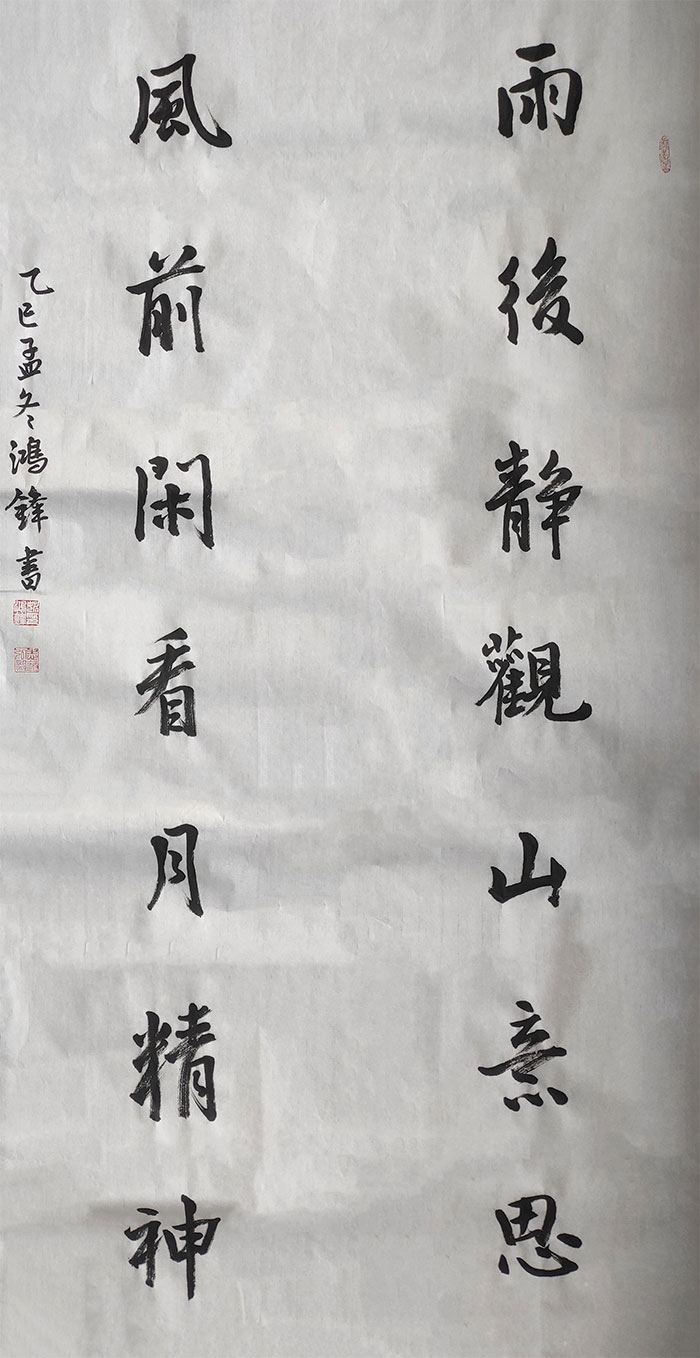 雨後静觀山意思
風前閑看月精神
乙巳孟冬鴻鋒書